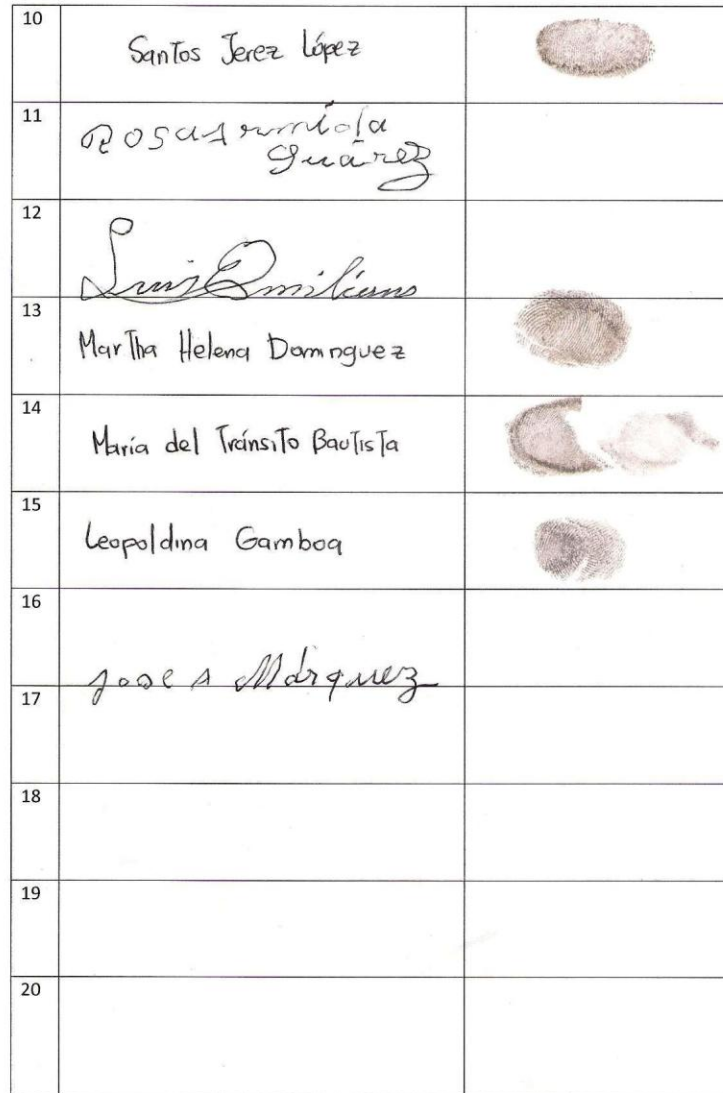 10
Santos Jerez López
11
Suárez
12
Luis Emiliano
13
Martha Helena Domnguez
14
María del Tránsito Bautista
15
Leopoldina Gamboa
16
Jose A Márquez
17
18
19
20